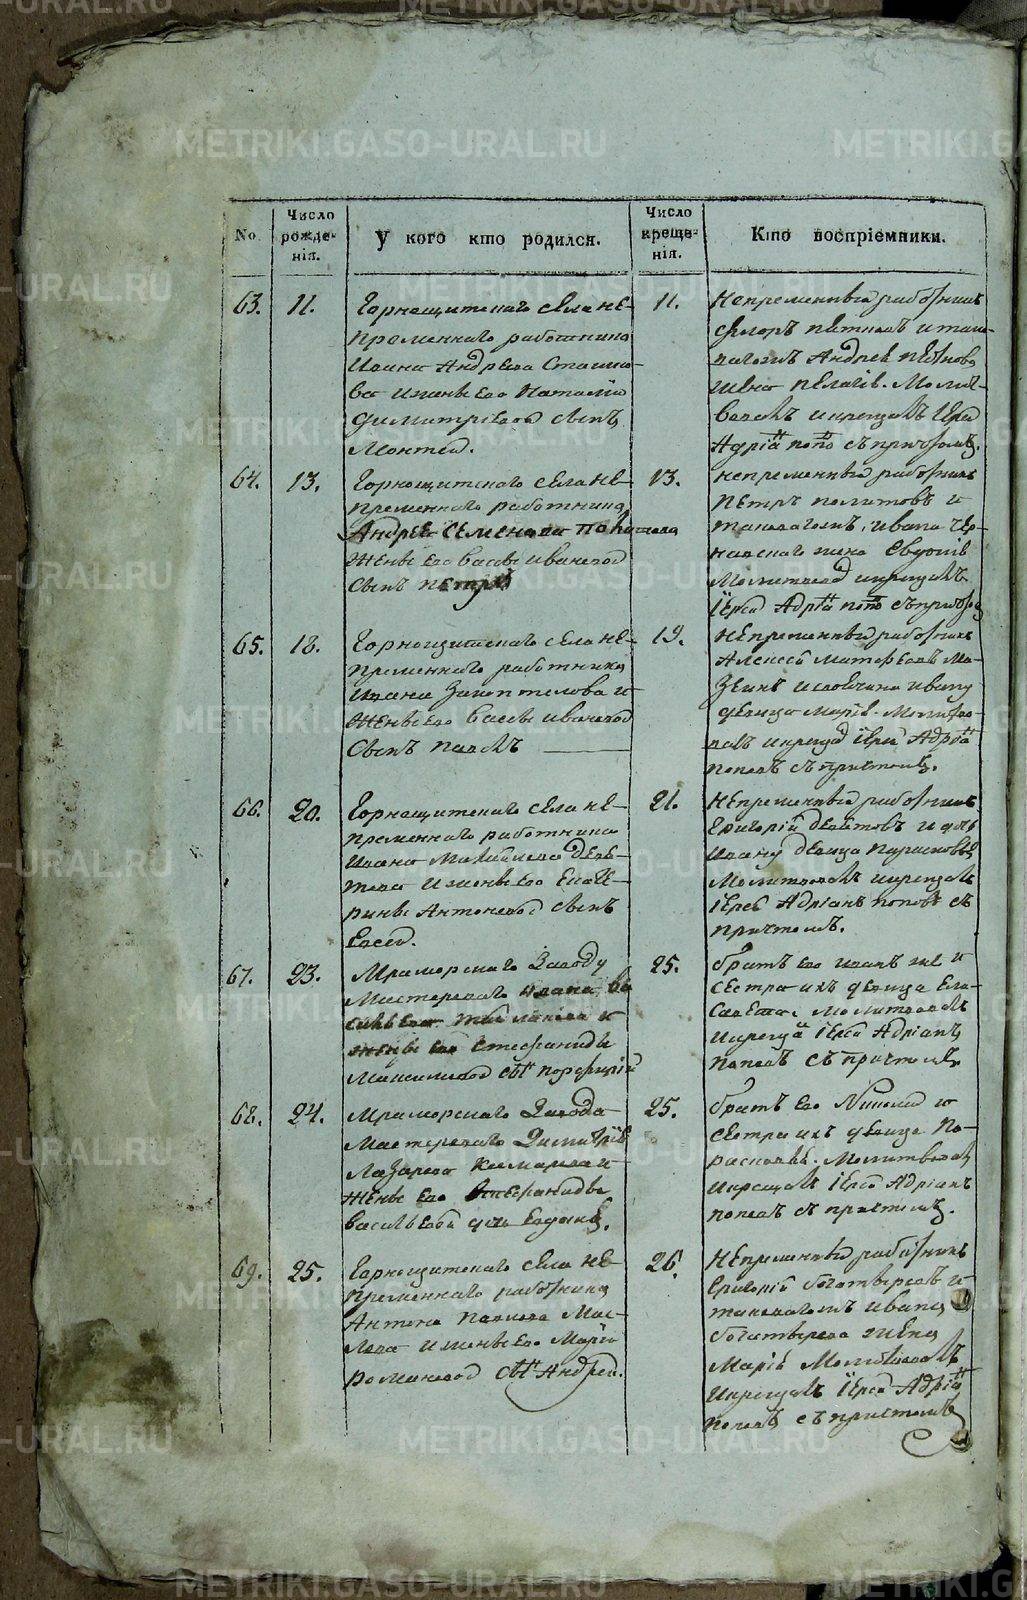 No
Число рожде-нія.
У кого кто родился.
Число креще-нія.
Кто воспріемники.
63.
11.
Горнощитскаго села не-
пременнаго работника
Ивана Андреева
и жены его Наталіи
Димитріевой сынъ
11.
Непременный работникъ
и таково
вагожъ Андрея
жена Пелагія. Молит-
вовалъ и крещалъ Іерей
Адріанъ Поповъ съ причтомъ.
64.
13.
Горнощитскаго села не-
пременнаго работника
Андрея Семенова
жены его Васы Ивановой
сынъ Петръ
13.
непременный работникъ
Петръ и
таковагожъ Ивана Чер-
жена Евдокія
Молитвовалъ и крещалъ
Іерей Адріанъ Поповъ съ причтом
65.
18.
Горнощитскаго села не-
пременнаго работника
Ивана Закоптелова и
жены его Васы Ивановой
сынъ Павелъ
19.
Непременный работникъ
Алексей Матфеевъ Ма-
Ивану
девица Марія. Молитво-
валъ и крещал Іерей Адріанъ
Поповъ съ причтомъ.
66.
20.
Горнощитскаго села не-
пременнаго работника
Ивана Михайлова Девя-
това и жены его Екате-
рины Антоновой сынъ
Евсей.
21.
Непременный работникъ
Григорій Девятовъ и дчь
Ивану девица Парасковья
Молитвовалъ и крещалъ
Іерей Адріанъ Поповъ съ
причтомъ.
67.
23.
Мраморскаго Заводу
Мастероваго Ивана Ва
сильева и
жены его Стефаниды
Максимовой сынъ Порфирій
25.
братъ его Иванъ же и
сестра ихъ девица Ели-
савета. Молитвовалъ
и крещалъ Іерей Адріанъ
Поповъ съ причтомъ
68.
24.
Мраморскаго Завода
Мастероваго Димитрія
Лазарева и
жены его Стефаниды
Васильевой дчь Евдокія.
25.
братъ его Николай и
сестра ихъ девица Па-
расковья. Молитвовалъ
и крещалъ Іерей Адріанъ
Поповъ съ причтомъ.
69.
25.
Горнощитскаго села не-
пременнаго работника
Антона Павлова Мас-
лова и жены его Маріи
Романовой сынъ Андрей.
26.
Непременный работникъ
Григорій Богатыревъ и
таковагожъ Ивана
Богатырева жена
Марія Молитвовалъ
и крещалъ Іерей Адріанъ
Поповъ съ причтомъ
METRIKI.GASO-URAL.RU